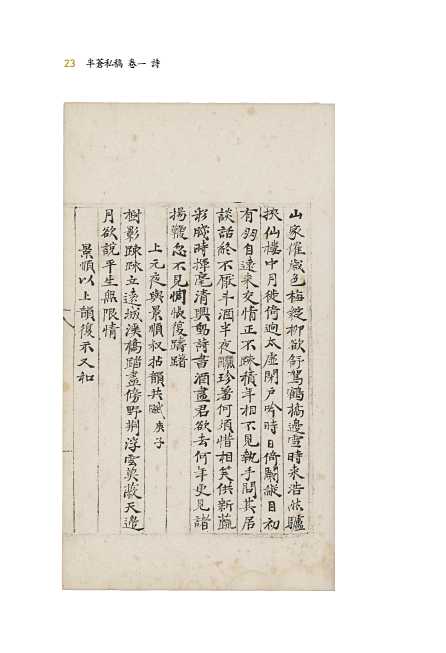 23 半蒼私稿 卷一 詩
山家催歲色梅綻柳欲舒駕鶴橋邊雪時來浩然驢
挾仙樓中月徙倚迥太虛閉戶吟時日倚獻日初
有朋自遠來交情正不疎積年相不見執手問其居
談話終不厭斗酒半夜釃珍著何須惜相笑供新蔬
彩成時揮毫清興動詩書酒盡君欲去何年更見諸
揚鞭忽不見惆悵復躊躇
上元夜與景順叔拈韻共賦 庚子
樹影疎疎立遠城溪橋踏盡傍野浮雲莫蔽天邊
月欲說平生無限情
景順以上韻復示又和